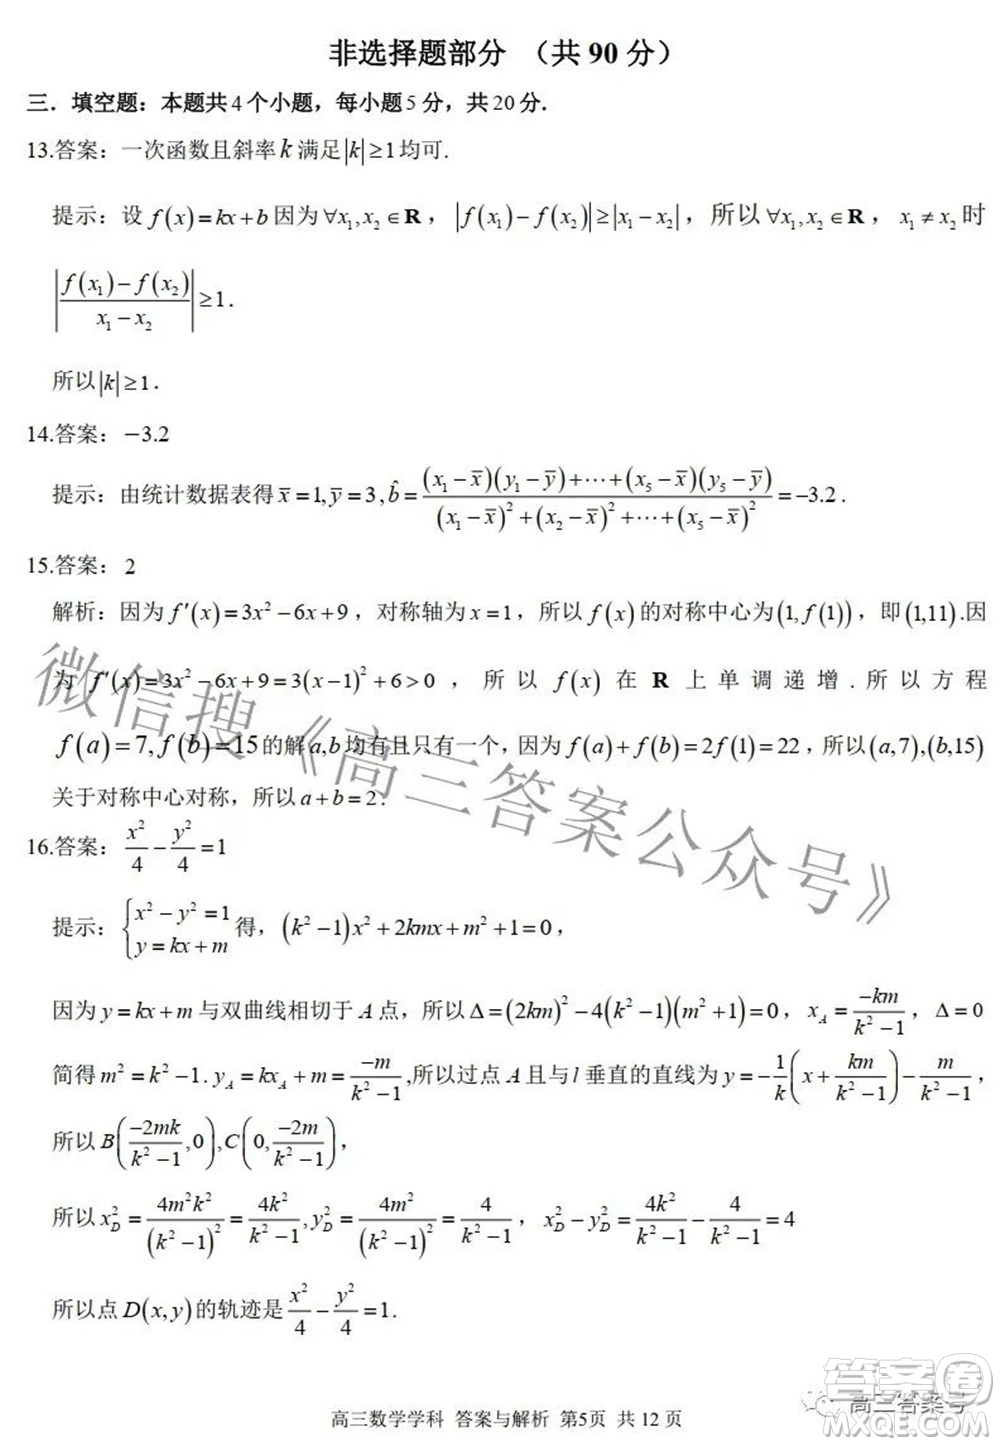 非选择题部分 （共 90 分）
三．填空题：本题共 4 个小题，每小题 5 分，共 20 分.
13.答案：一次函数且斜率 k 满足 |k| ≥ 1 均可.
提示：设 f(x) = kx + b 因为 ∀x₁, x₂ ∈ R， |f(x₁) − f(x₂)| ≥ |x₁ − x₂|，所以 ∀x₁, x₂ ∈ R， x₁ ≠ x₂ 时
|(f(x₁) − f(x₂))/(x₁ − x₂)| ≥ 1．
所以 |k| ≥ 1．
14.答案：−3.2
提示：由统计数据表得 x̄ = 1, ȳ = 3, b̂ = ((x₁ − x̄)(y₁ − ȳ) + ⋯ + (x₅ − x̄)(y₅ − ȳ))/((x₁ − x̄)² + (x₂ − x̄)² + ⋯ + (x₅ − x̄)²) = −3.2．
15.答案： 2
解析：因为 f′(x) = 3x² − 6x + 9，对称轴为 x = 1，所以 f(x) 的对称中心为 (1, f(1))，即 (1,11) .因
为 f′(x) = 3x² − 6x + 9 = 3(x − 1)² + 6 > 0 ，所以 f(x) 在 R 上单调递增.所以方程
f(a) = 7, f(b) = 15 的解 a, b 均有且只有一个，因为 f(a) + f(b) = 2f(1) = 22，所以 (a,7), (b,15)
关于对称中心对称，所以 a + b = 2．
16.答案： x²/4 − y²/4 = 1
提示：{x² − y² = 1, y = kx + m 得， (k² − 1)x² + 2kmx + m² + 1 = 0，
因为 y = kx + m 与双曲线相切于 A 点，所以 Δ = (2km)² − 4(k² − 1)(m² + 1) = 0， x_A = −km/(k² − 1)，Δ = 0
简得 m² = k² − 1 . y_A = kx_A + m = −m/(k² − 1) ,所以过点 A 且与 l 垂直的直线为 y = −1/k (x + km/(k² − 1)) − m/(k² − 1)，
所以 B(−2mk/(k² − 1), 0), C(0, −2m/(k² − 1))，
所以 x_D² = 4m²k²/(k² − 1)² = 4k²/(k² − 1), y_D² = 4m²/(k² − 1)² = 4/(k² − 1)， x_D² − y_D² = 4k²/(k² − 1) − 4/(k² − 1) = 4
所以点 D(x, y) 的轨迹是 x²/4 − y²/4 = 1.
微信搜《高三答案公众号》
高三答案号
答案卷
MXQE.COM
高三数学学科 答案与解析 第5页 共 12 页